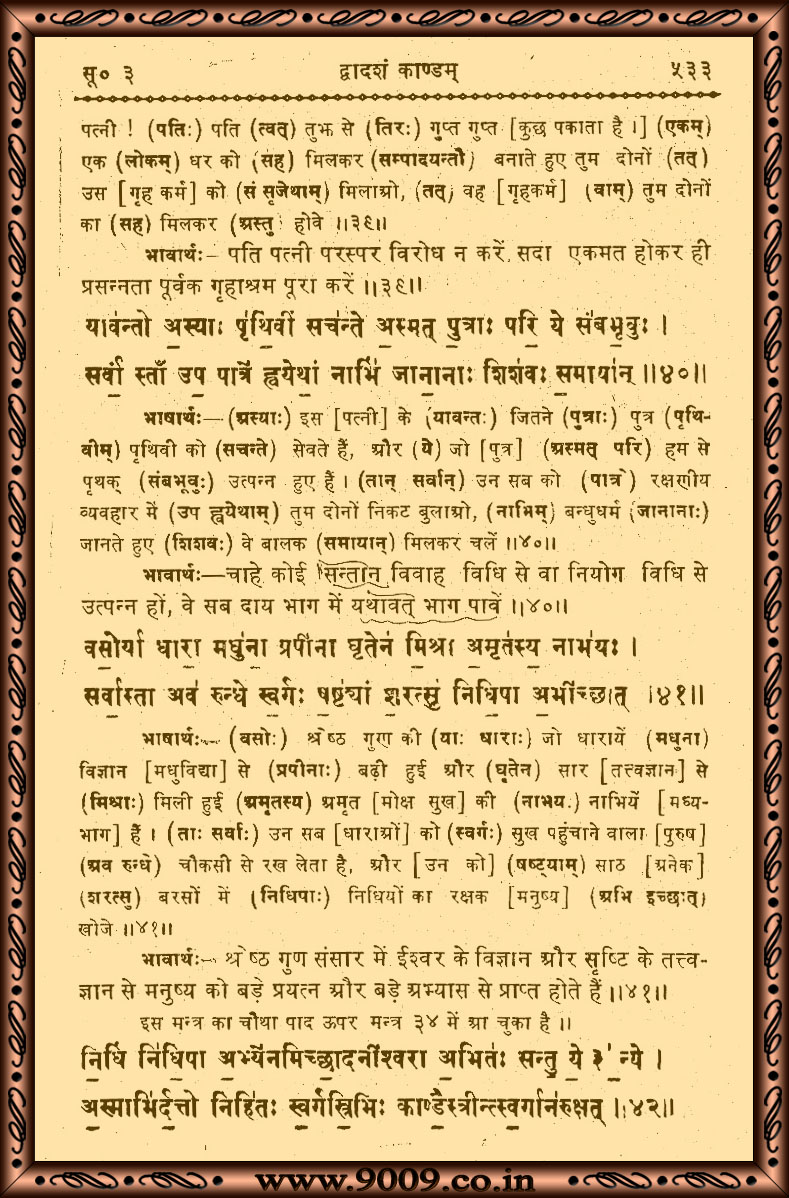 सू० ३ द्वादशं काण्डम् ५३३
पत्नी ! (पतिः) पति (त्वत्) तुझ से (तिरः) गुप्त गुप्त [कुछ पकाता है ।] (एकम्)
एक (लोकम्) घर को (सह) मिलकर (सम्पादयन्तौ) बनाते हुए तुम दोनों (तत्)
उस [गृह कर्म] को (सं सृजेथाम्) मिलाओ, (तत्) वह [गृहकर्म] (वाम्) तुम दोनों
का (सह) मिलकर (अस्तु) होवे ॥३९॥
भावार्थः– पति पत्नी परस्पर विरोध न करें सदा एकमत होकर ही
प्रसन्नता पूर्वक गृहाश्रम पूरा करें ॥३९॥
याव॑न्तो अ॒स्याः पृ॑थि॒वीं सच॑न्ते अ॒स्मत् पु॒त्राः परि॒ ये सं॑बभू॒वुः ।
सर्वां॒ स्ताँ उप॒ पात्रे॑ ह्वयेथां॒ नाभिं॑ जाना॒नाः शिश॑वः स॒माया॑न् ॥४०॥
भाषार्थः—(अस्याः) इस [पत्नी] के (यावन्तः) जितने (पुत्राः) पुत्र (पृथि-
वीम्) पृथिवी को (सचन्ते) सेवते हैं, और (ये) जो [पुत्र] (अस्मत् परि) हम से
पृथक् (संबभूवुः) उत्पन्न हुए हैं । (तान् सर्वान्) उन सब को (पात्रे) रक्षणीय
व्यवहार में (उप ह्वयेथाम्) तुम दोनों निकट बुलाओ, (नाभिम्) बन्धुधर्म (जानानाः)
जानते हुए (शिशवः) वे बालक (समायान्) मिलकर चलें ॥४०॥
भावार्थः—चाहे कोई सन्तान विवाह विधि से वा नियोग विधि से
उत्पन्न हों, वे सब दाय भाग में यथावत् भाग पावें ॥४०॥
वसो॒र्या धारा॒ मधु॑ना॒ प्रपी॑ना घृ॒तेन॑ मि॒श्रा अ॒मृत॑स्य॒ नाभ॑यः ।
सर्वा॒स्ता अव॑ रुन्धे स्व॒र्गः ष॒ष्ट्यां श॒रत्सु॑ निधि॒पा अ॒भीच्छात् ॥४१॥
भाषार्थः—(वसोः) श्रेष्ठ गुण की (याः धाराः) जो धारायें (मधुना)
विज्ञान [मधुविद्या] से (प्रपीनाः) बढ़ी हुई और (घृतेन) सार [तत्त्वज्ञान] से
(मिश्राः) मिली हुई (अमृतस्य) अमृत [मोक्ष सुख] की (नाभयः) नाभियें [मध्य-
भाग] हैं । (ताः सर्वाः) उन सब [धाराओं] को (स्वर्गः) सुख पहुंचाने वाला [पुरुष]
(अव रुन्धे) चौकसी से रख लेता है, और [उन को] (षष्ट्याम्) साठ [अनेक]
(शरत्सु) बरसों में (निधिपाः) निधियों का रक्षक [मनुष्य] (अभि इच्छात्)
खोजे ॥४१॥
भावार्थः— श्रेष्ठ गुण संसार में ईश्वर के विज्ञान और सृष्टि के तत्त्व-
ज्ञान से मनुष्य को बड़े प्रयत्न और बड़े अभ्यास से प्राप्त होते हैं ॥४१॥
इस मन्त्र का चौथा पाद ऊपर मन्त्र ३४ में आ चुका है ॥
नि॒धिं नि॑धि॒पा अ॒भ्ये॑नमिच्छा॒दनी॑श्वरा अ॒भितः॑ सन्तु॒ ये॒३॒॑न्ये ।
अ॒स्माभि॑र्द॒त्तो निहि॑तः स्व॒र्गस्त्रि॒भिः काण्डै॒स्त्रीन्त्स्व॒र्गान॑रुक्षत् ॥४२॥
www.9009.co.in